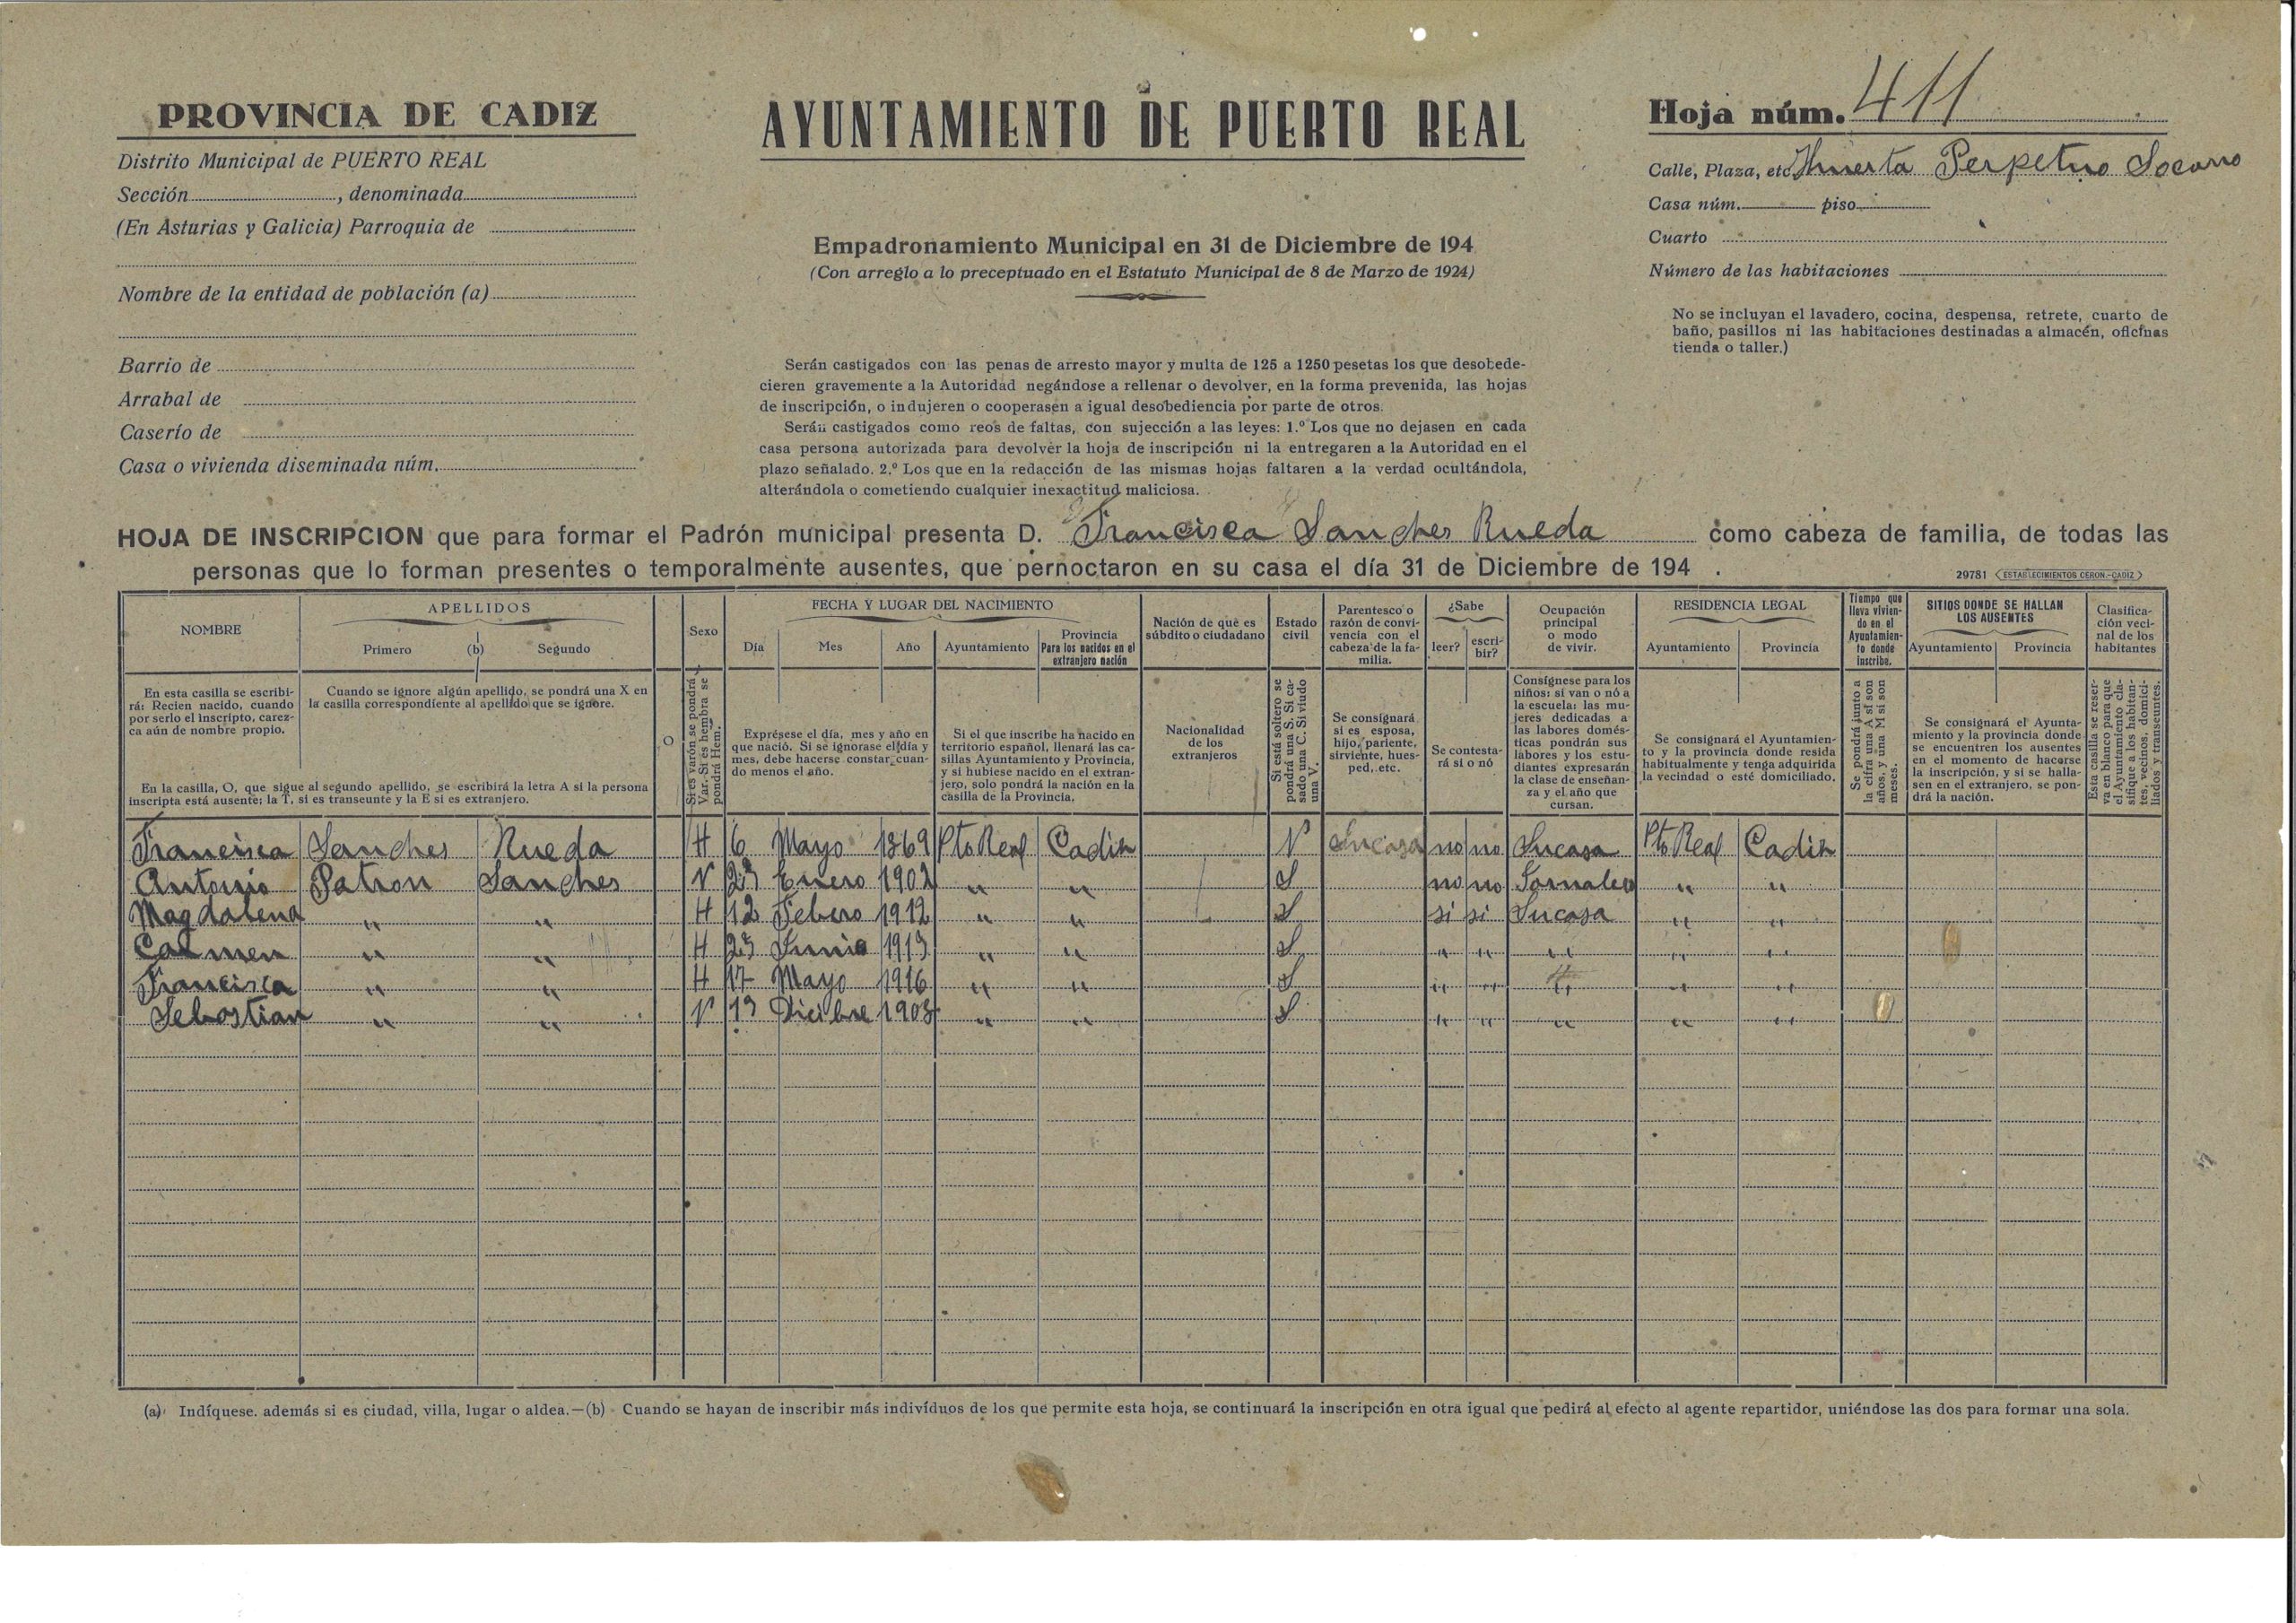 PROVINCIA DE CADIZ
Distrito Municipal de PUERTO REAL
Sección , denominada
(En Asturias y Galicia) Parroquia de
Nombre de la entidad de población (a)
Barrio de
Arrabal de
Caserío de
Casa o vivienda diseminada núm.
AYUNTAMIENTO DE PUERTO REAL
Empadronamiento Municipal en 31 de Diciembre de 194
(Con arreglo a lo preceptuado en el Estatuto Municipal de 8 de Marzo de 1924)
Serán castigados con las penas de arresto mayor y multa de 125 a 1250 pesetas los que desobede-
cieren gravemente a la Autoridad negándose a rellenar o devolver, en la forma prevenida, las hojas
de inscripción, o indujeren o cooperasen a igual desobediencia por parte de otros.
Serán castigados como reos de faltas, con sujección a las leyes: 1.º Los que no dejasen en cada
casa persona autorizada para devolver la hoja de inscripción ni la entregaren a la Autoridad en el
plazo señalado. 2.º Los que en la redacción de las mismas hojas faltaren a la verdad ocultándola,
alterándola o cometiendo cualquier inexactitud maliciosa.
Hoja núm. 411
Calle, Plaza, etc. Huerta Perpetuo Socorro
Casa núm. piso
Cuarto
Número de las habitaciones
No se incluyan el lavadero, cocina, despensa, retrete, cuarto de
baño, pasillos ni las habitaciones destinadas a almacén, oficinas
tienda o taller.)
HOJA DE INSCRIPCION que para formar el Padrón municipal presenta D. Francisca Sanches Rueda como cabeza de familia, de todas las
personas que lo forman presentes o temporalmente ausentes, que pernoctaron en su casa el día 31 de Diciembre de 194 .
29781 (ESTABLECIMIENTOS CERON.-CADIZ)
NOMBRE
APELLIDOS
Primero (b) Segundo
O
Sexo
FECHA Y LUGAR DEL NACIMIENTO
Día Mes Año Ayuntamiento
Provincia
Para los nacidos en el
extranjero nación
Nación de que es
súbdito o ciudadano
Estado
civil
Parentesco o
razón de convi-
vencia con el
cabeza de la fa-
milia.
¿Sabe
leer? escri-
bir?
Ocupación
principal
o modo
de vivir.
RESIDENCIA LEGAL
Ayuntamiento Provincia
Tiempo que
lleva vivien-
do en el
Ayuntamien-
to donde
inscribe.
SITIOS DONDE SE HALLAN
LOS AUSENTES
Ayuntamiento Provincia
Clasifica-
ción veci-
nal de los
habitantes
En esta casilla se escribi-
rá: Recien nacido, cuando
por serlo el inscripto, carez-
ca aún de nombre propio.
Cuando se ignore algún apellido, se pondrá una X en
la casilla correspondiente al apellido que se ignore.
En la casilla, O, que sigue al segundo apellido, se escribirá la letra A si la persona
inscripta está ausente; la T, si es transeunte y la E si es extranjero.
Si es varón se pondrá
Var. Si es hembra se
pondrá Hem.
Exprésese el día, mes y año en
que nació. Si se ignorase el día y
mes, debe hacerse constar cuan-
do menos el año.
Si el que inscribe ha nacido en
territorio español, llenará las ca-
sillas Ayuntamiento y Provincia,
y si hubiese nacido en el extran-
jero, solo pondrá la nación en la
casilla de la Provincia.
Nacionalidad
de los
extranjeros
Si está soltero se
pondrá una S. Si ca-
sado una C. Si viudo
una V.
Se consignará
si es esposa,
hijo, pariente,
sirviente, hues-
ped, etc.
Se contesta-
rá si o nó
Consígnese para los
niños: si van o nó a
la escuela: las mu-
jeres dedicadas a
las labores domés-
ticas pondrán sus
labores y los estu-
diantes expresarán
la clase de enseñan-
za y el año que
cursan.
Se consignará el Ayuntamien-
to y la provincia donde resida
habitualmente y tenga adquirida
la vecindad o esté domiciliado.
Se pondrá junto a
la cifra una A si son
años, y una M si son
meses.
Se consignará el Ayunta-
miento y la provincia donde
se encuentren los ausentes
en el momento de hacerse
la inscripción, y si se halla-
sen en el extranjero, se pon-
drá la nación.
Esta casilla se reser-
va en blanco para que
el Ayuntamiento cla-
sifique a los habitan-
tes, vecinos, domici-
liados y transeuntes.
Francisca Sanches Rueda H 6 Mayo 1869 Pto Real Cadiz V Sucasa no no Sucasa Pto Real Cadiz
Antonio Patron Sanches V 23 Enero 1902 " " S no no Jornalero " "
Magdalena " " H 12 Febero 1912 " " S si si Sucasa " "
Carmen " " H 23 Junio 1913 " " S " " " " "
Francisca " " H 17 Mayo 1916 " " S " " " " "
Sebastian " " V 13 Dicibre 1908 " " S " " " " "
(a) Indíquese. además si es ciudad, villa, lugar o aldea.—(b) Cuando se hayan de inscribir más indivíduos de los que permite esta hoja, se continuará la inscripción en otra igual que pedirá al efecto al agente repartidor, uniéndose las dos para formar una sola.